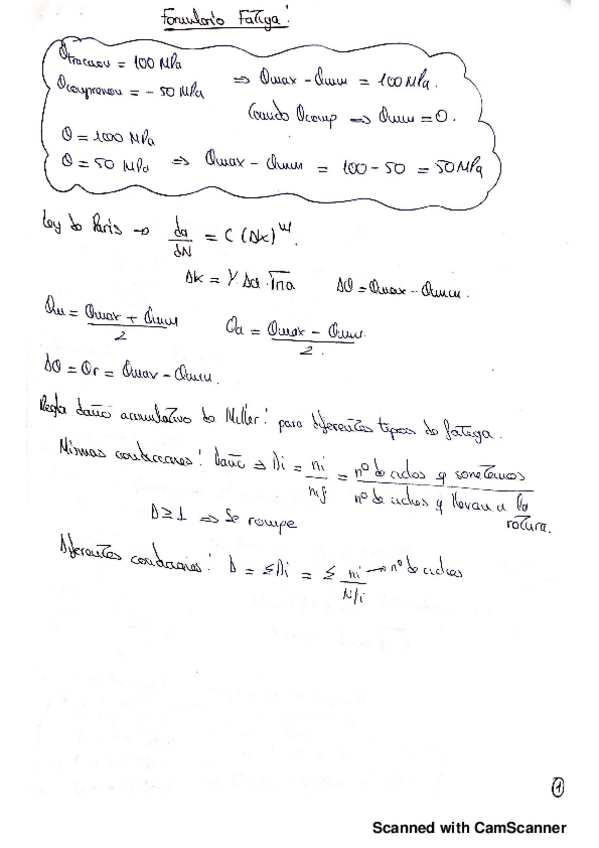 Formulario Fatiga:
σtraccion = 100 MPa
σcompresion = - 50 MPa
⇒ σmax - σmin = 100 MPa.
Cuando σcomp ⇒ σmin = 0.
σ = 100 MPa
σ = 50 MPa ⇒ σmax - σmin = 100 - 50 = 50 MPa
Ley de Paris → da/dN = C (Δk)^m.
Δk = Y Δσ · √πa    Δσ = σmax - σmin.
σm = (σmax + σmin)/2    σa = (σmax - σmin)/2.
Δσ = σr = σmax - σmin.
Regla daño acumulativo de Miller: para diferentes tipos de fatiga.
Mismas condiciones: Daño ⇒ Di = ni/nf = nº de ciclos q sometemos / nº de ciclos q llevan a la rotura.
D ≥ 1 ⇒ Se rompe
Diferentes condiciones: D = ΣDi = Σ ni/Nfi → nº de ciclos
1
Scanned with CamScanner